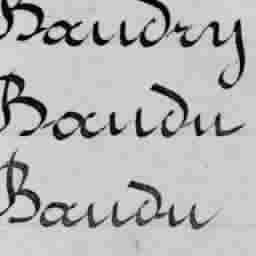 Baudry
Baudu
Baudu